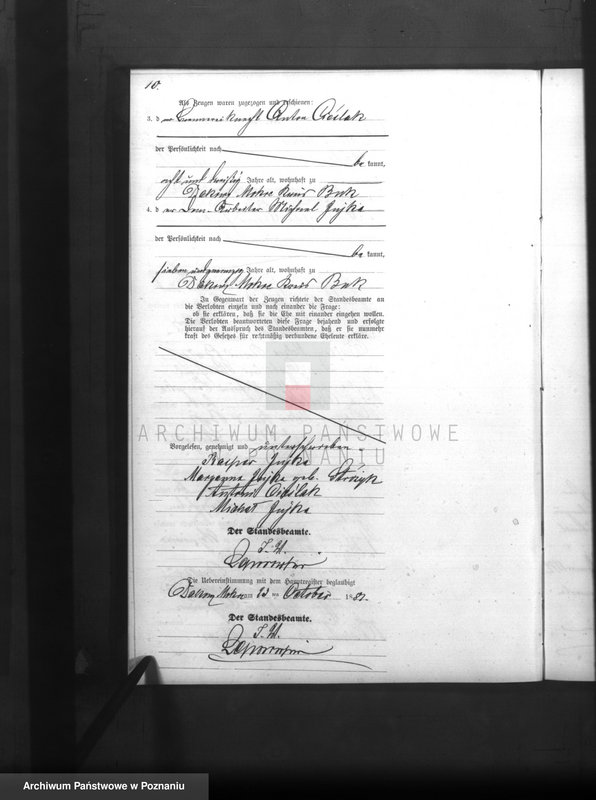 10.
Als Zeugen waren zugezogen und erschienen:
3. der knecht Anton Cieślak
der Persönlichkeit nach
be kannt,
acht und dreißig Jahre alt, wohnhaft zu
Dakowy Mokre Kreis Buk
4. der Arbeiter Michael Jujka
der Persönlichkeit nach
be kannt,
sieben und zwanzig Jahre alt, wohnhaft zu
Dakowy Mokre Kreis Buk
In Gegenwart der Zeugen richtete der Standesbeamte an
die Verlobten einzeln und nach einander die Frage:
ob sie erklären, daß sie die Ehe mit einander eingehen wollen.
Die Verlobten beantworteten diese Frage bejahend und erfolgte
hierauf der Ausspruch des Standesbeamten, daß er sie nunmehr
kraft des Gesetzes für rechtmäßig verbundene Eheleute erkläre.
ARCHIWUM PAŃSTWOWE
W POZNANIU
Vorgelesen, genehmigt und unterschrieben
Kacper Jujka
Maryanna Jujka geb.
Antoni Cieślak
Michał Jujka
Der Standesbeamte.
Die Uebereinstimmung mit dem Hauptregister beglaubigt
Dakowy Mokre am ten October 188
Der Standesbeamte.
Archiwum Państwowe w Poznaniu